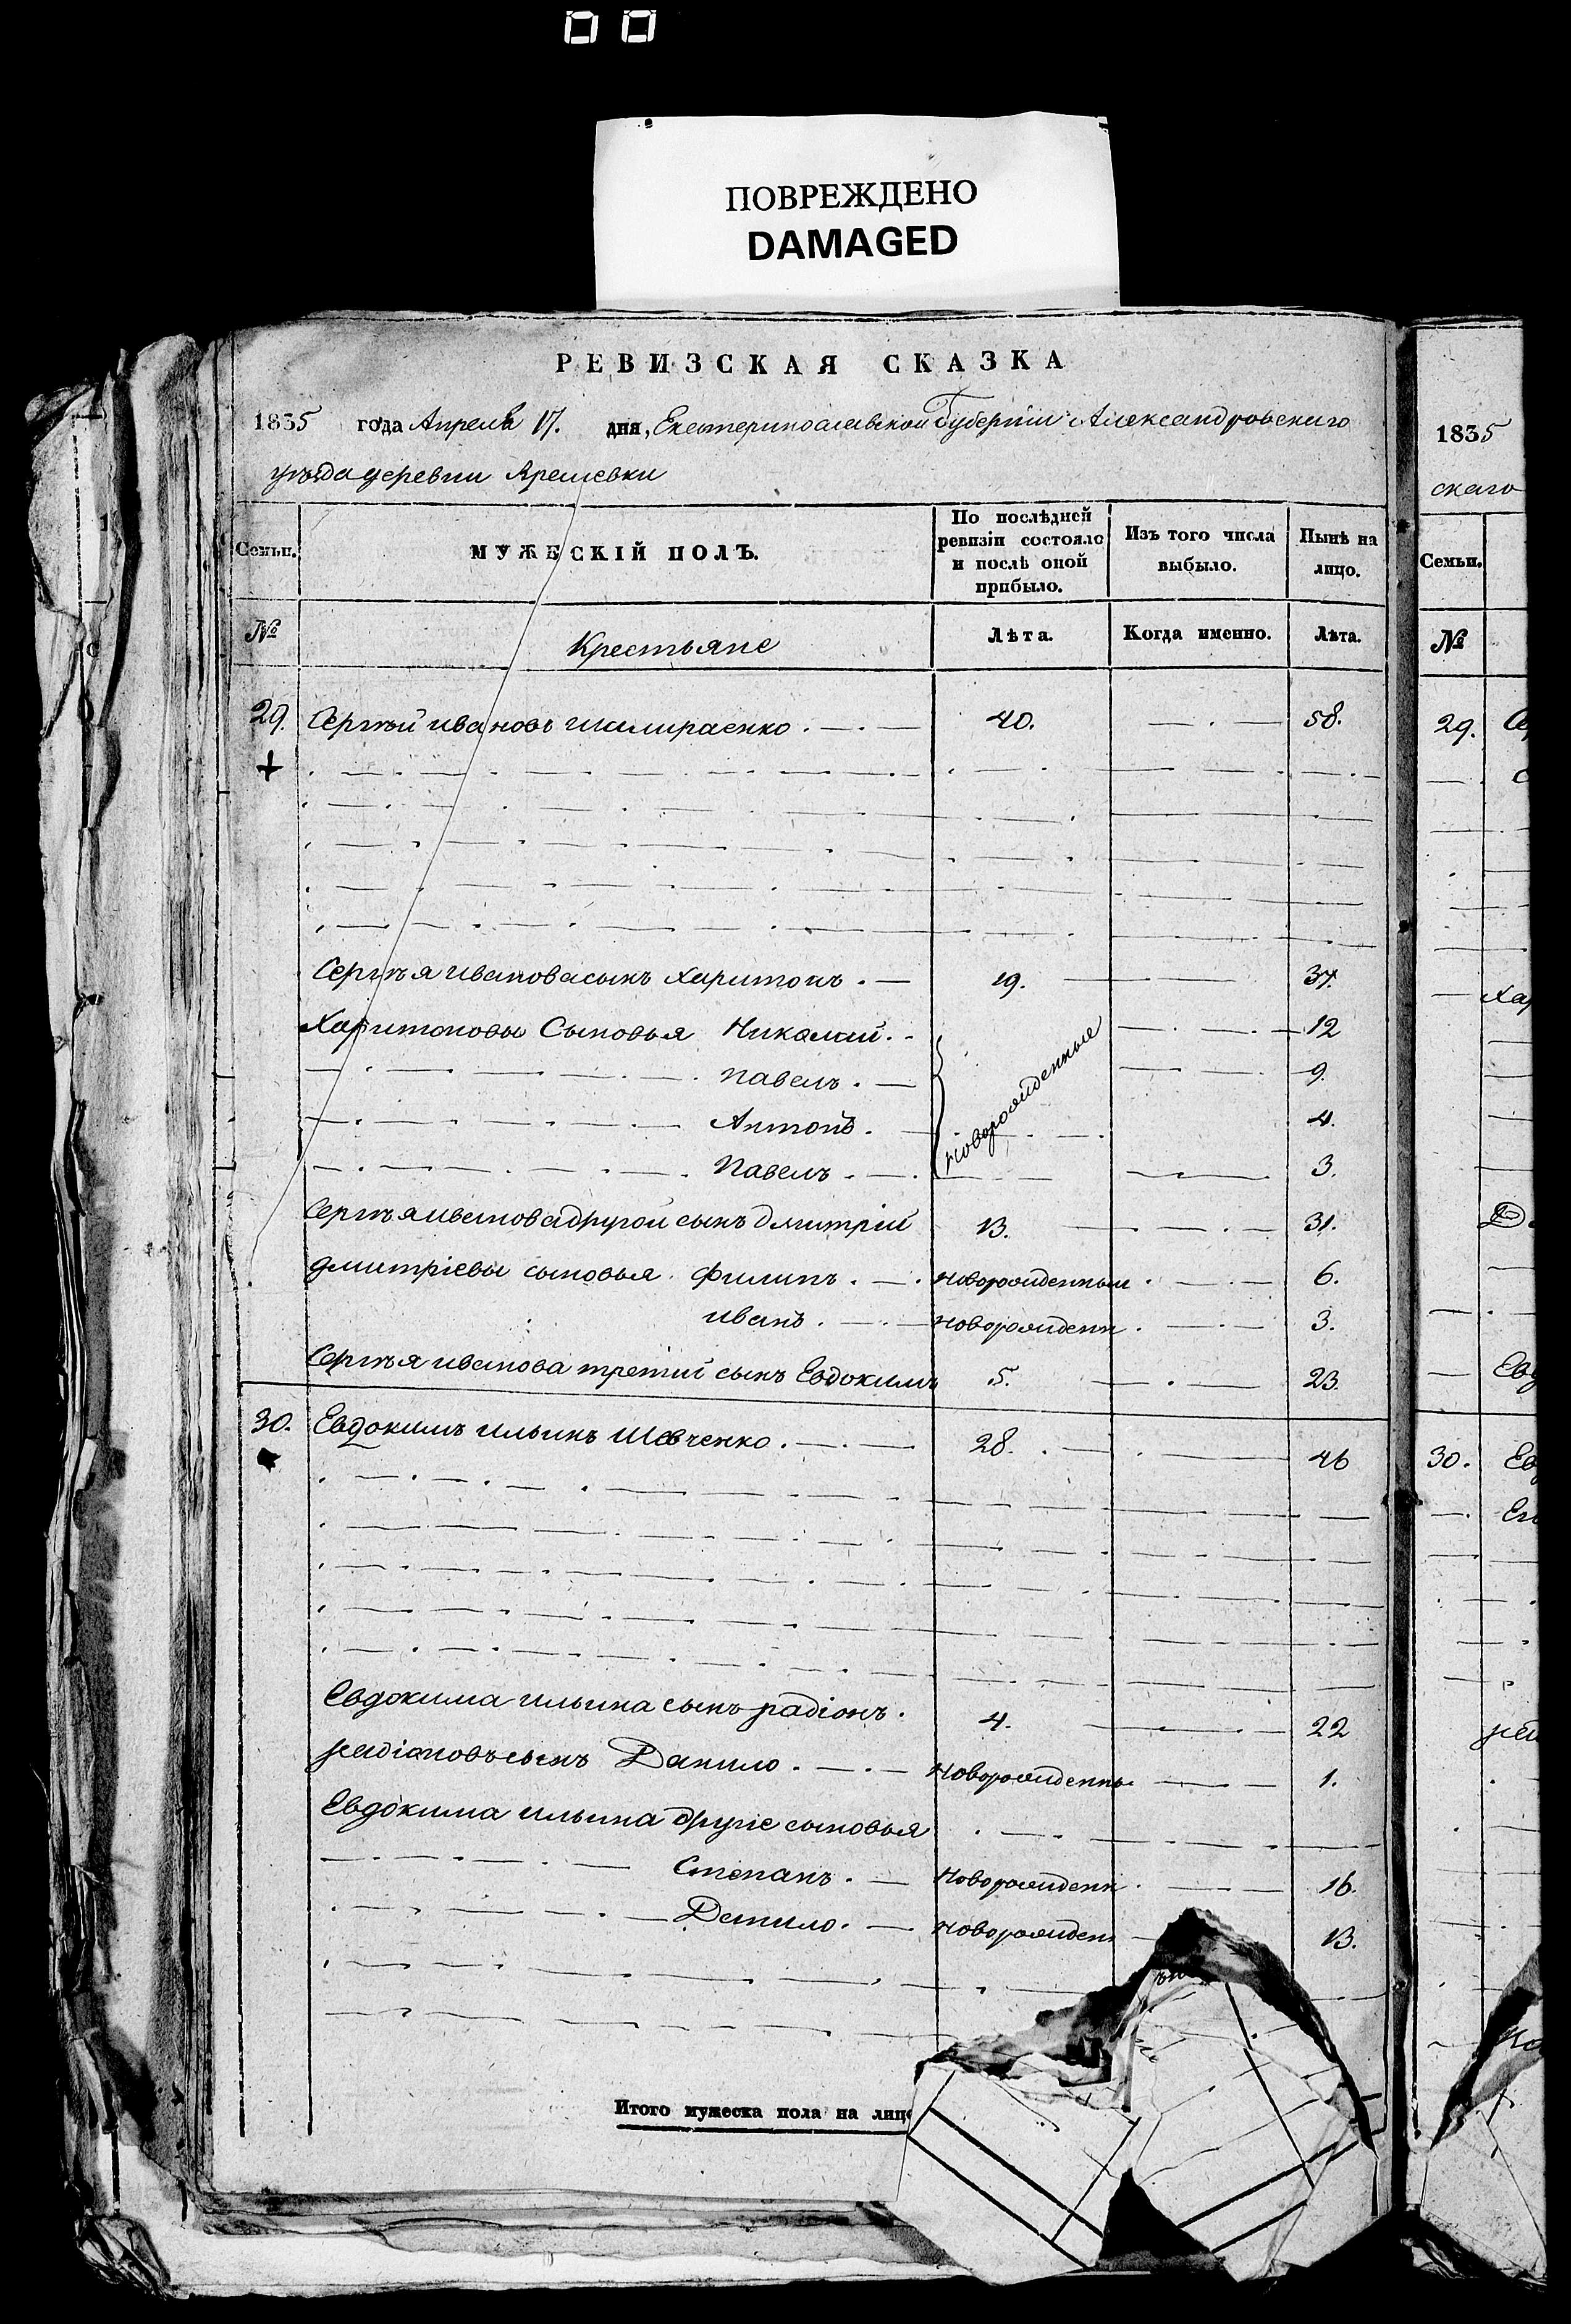 ПОВРЕЖДЕНО
DAMAGED
РЕВИЗСКАЯ СКАЗКА
1835 года Апреля 17. дня, Екатеринославской Губернiи Александровскаго
уѣзда деревни
1835
скаго
Семьи.
МУЖЕСКIЙ ПОЛЪ.
По послѣдней ревизiи состояло и послѣ оной прибыло.
Изъ того числа выбыло.
Нынѣ на лицо.
Семьи.
№ Крестьяне Лѣта. Когда именно. Лѣта. №
29. Сергѣй Ивановъ 40. 58. 29.
Сергѣя Иванова сынъ Харитонъ 19. 37.
Харитоновы Сыновья Николай 12
Павелъ 9.
Антонъ 4.
Павелъ 3.
новорожденные
Сергѣя Иванова другой сынъ Дмитрiй 13. 31.
Дмитрiевы сыновья Филипъ новорожденный 6.
Иванъ новорожденн 3.
Сергѣя Иванова третiй сынъ Евдокимъ 5. 23.
30. Евдокимъ Ильинъ Шевченко 28. 46 30.
Евдокима Ильина сынъ Радiонъ 4. 22
Радiоновъ сынъ Данило Новорожденны 1.
Евдокима Ильина другiе сыновья
Степанъ Новорожденн 16.
Данило новорожден 13.
Итого мужеска пола на лицо